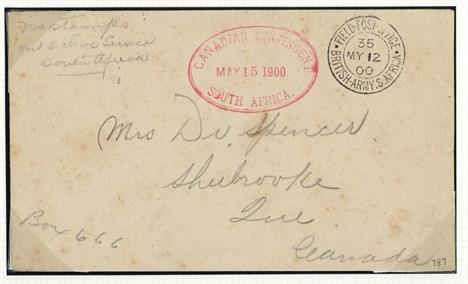 no stamps
on active Service
South Africa
CANADIAN CONTINGENT
MAY 15 1900
SOUTH AFRICA.
FIELD-POST-OFFICE
35
MY 12
00
BRITISH-ARMY.S.AFRICA
Mrs Dr. Spencer
Sherbrooke
Que
Box 666
Canada
787